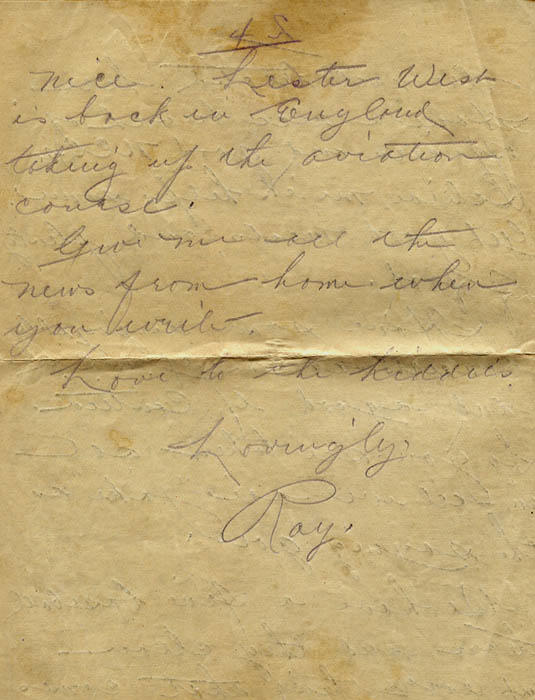 nice. Lester West
is back in England
taking up the aviation
course.
Give me all the
news from home when
you write.
Love to the kiddies
Lovingly,
Ray.